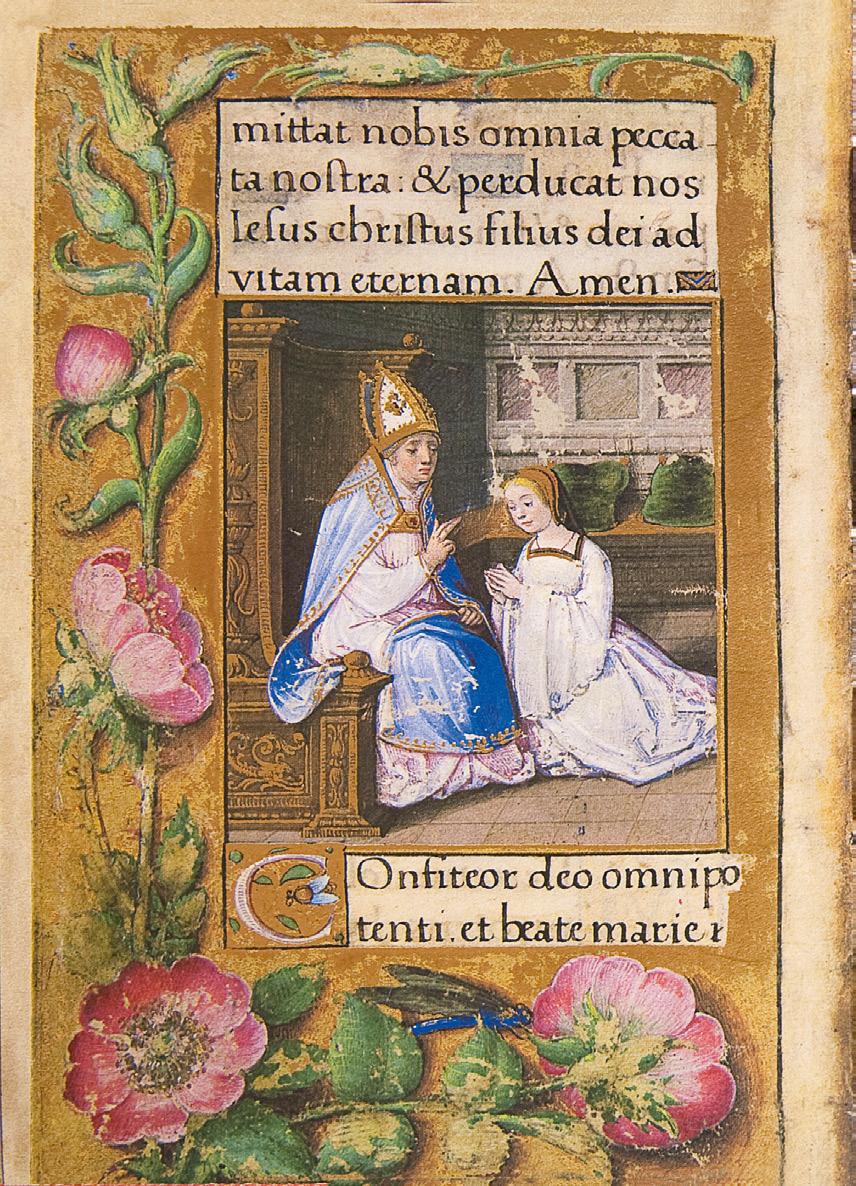 mittat nobis omnia pecca
ta noſtra : & perducat nos
Ieſus chriſtus filius dei ad
vitam eternam. Amen.
COnfiteor deo omnipo
tenti. et beate marie